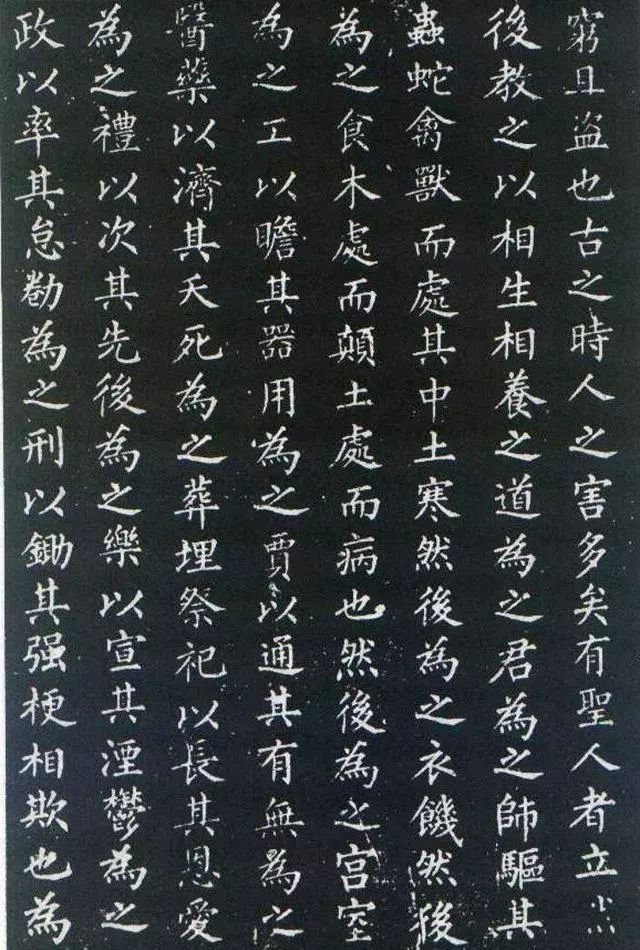 窮且盗也古之時人之害多矣有聖人者立然
後教之以相生相養之道為之君為之師驅其
蟲蛇禽獸而處其中土寒然後為之衣饑然後
為之食木處而顛土處而病也然後為之宫室
為之工以瞻其器用為之賈以通其有無為之
醫藥以濟其夭死為之葬埋祭祀以長其恩愛
為之禮以次其先後為之樂以宣其湮鬱為之
政以率其怠勌為之刑以鋤其强梗相欺也為